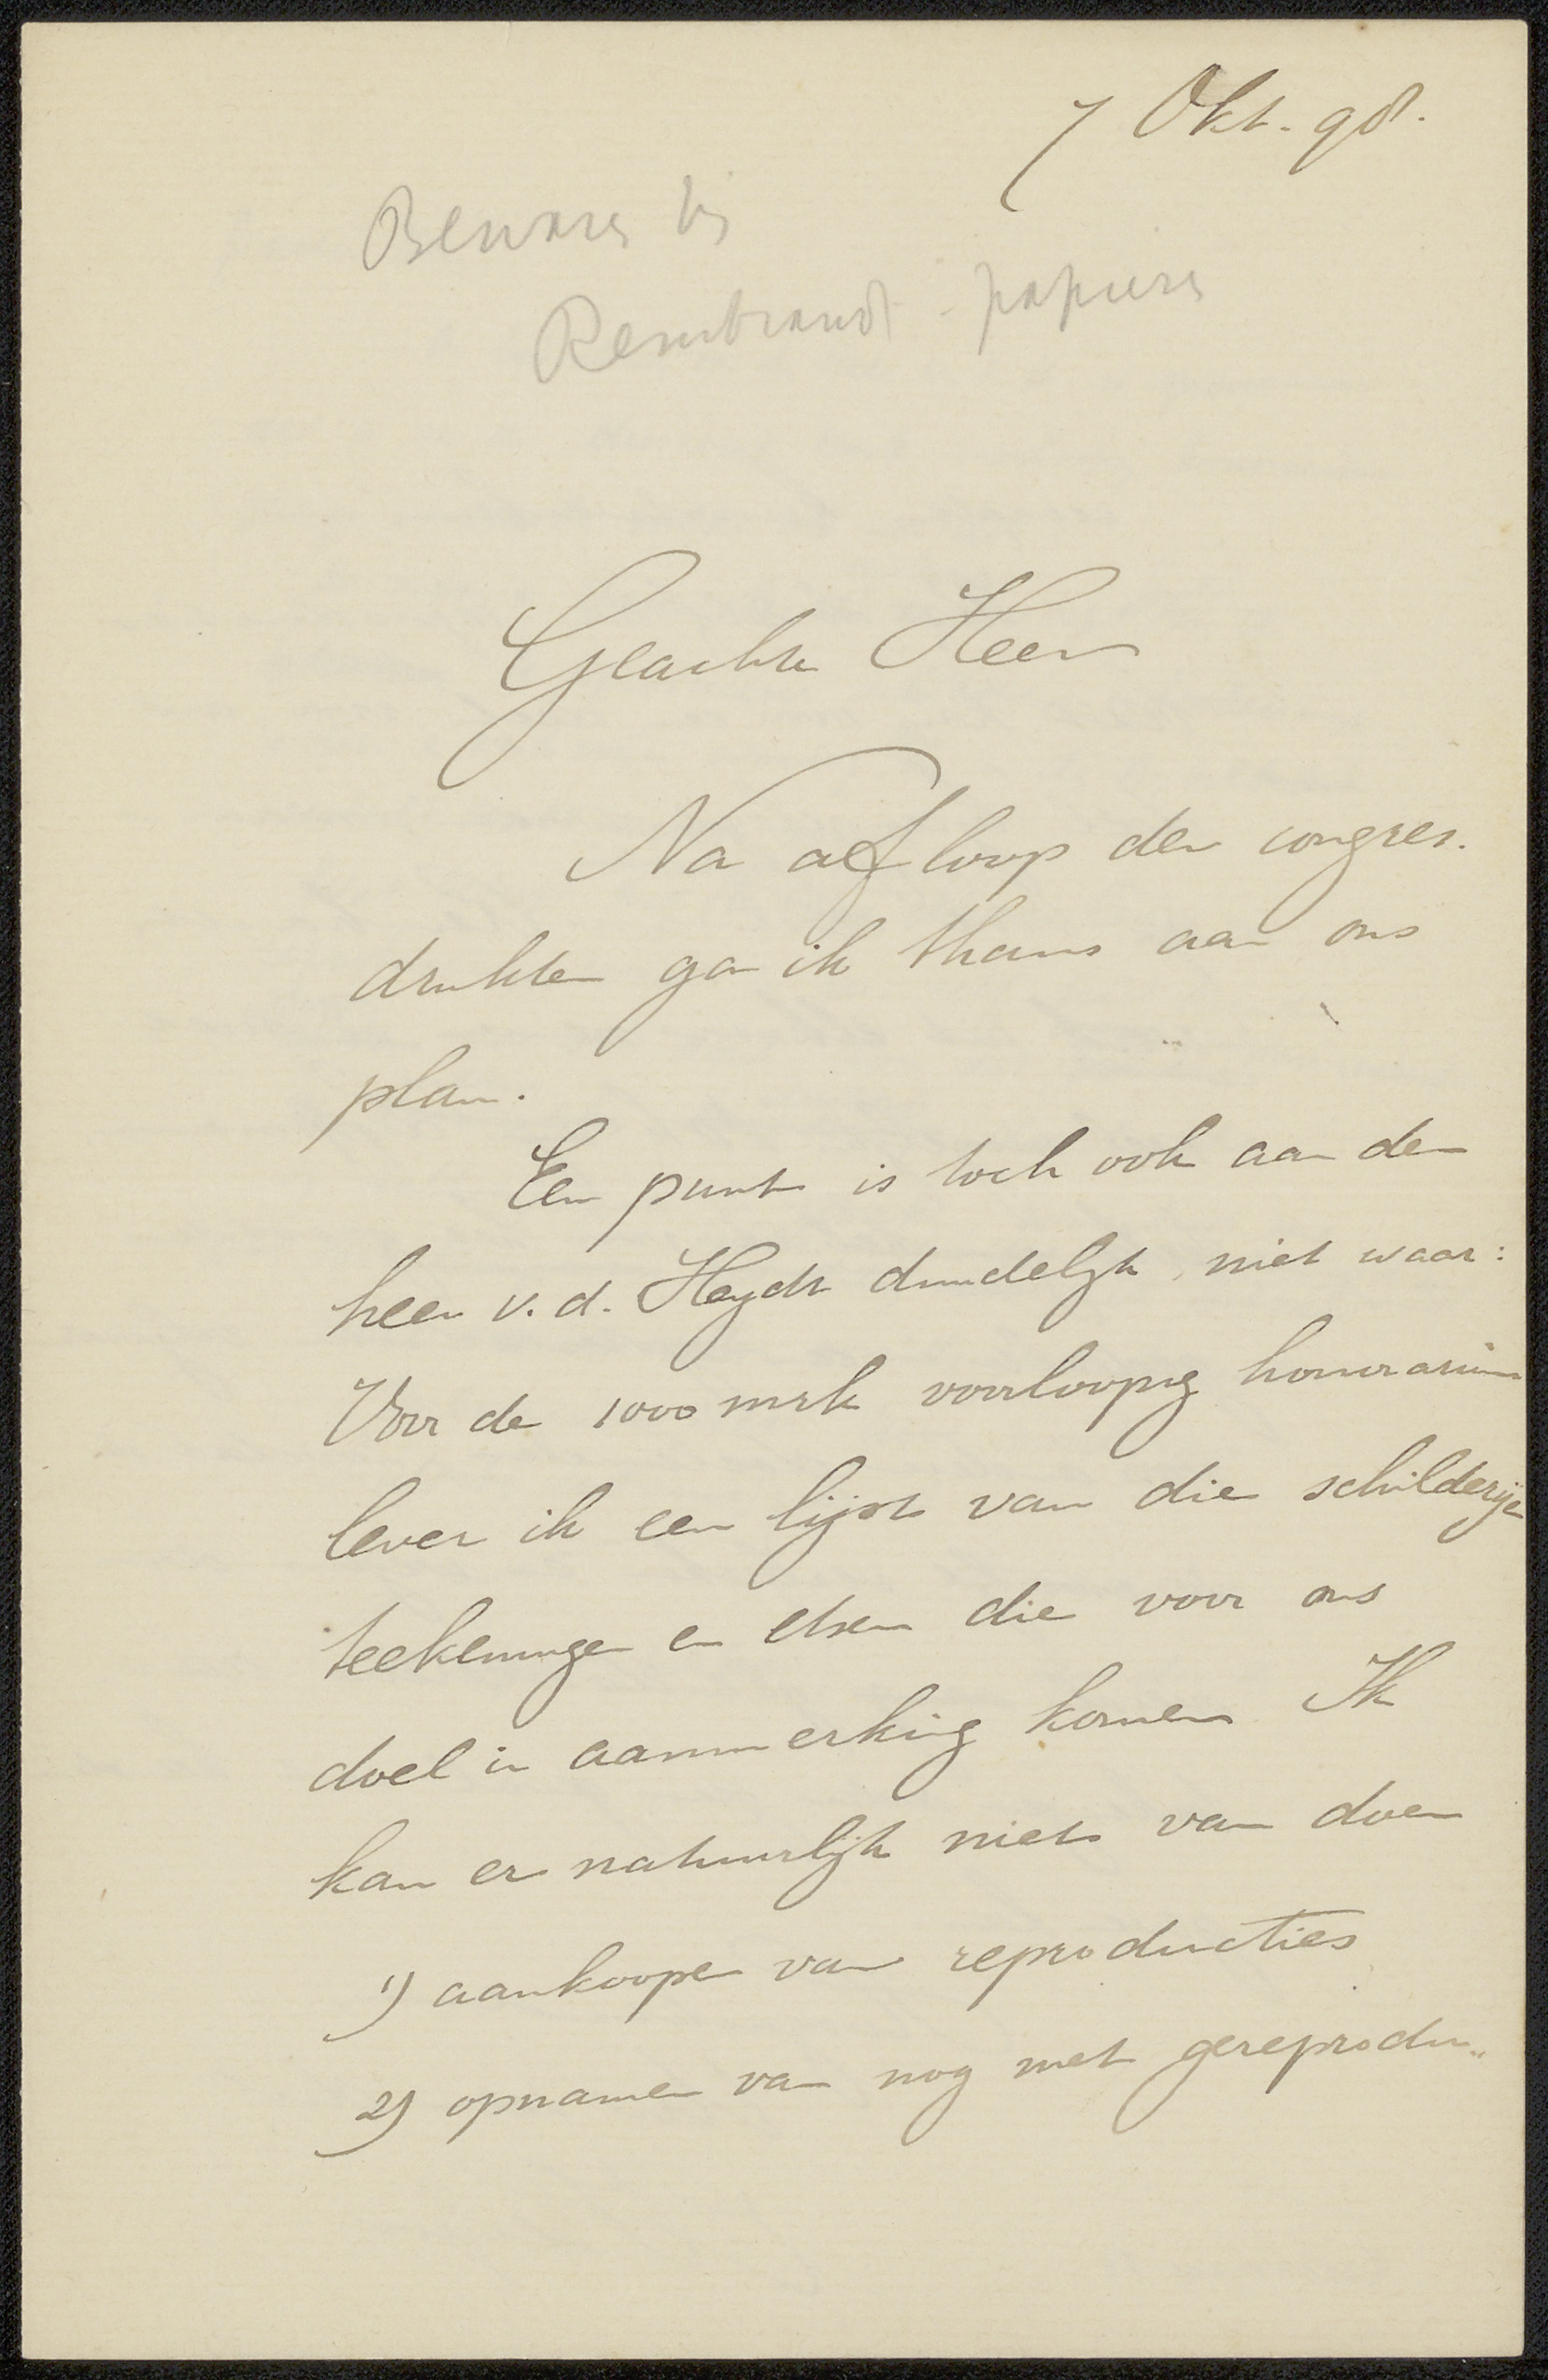 7 Okt. 98.
Bewaren bij
Rembrandt-papieren
Geachte Heer
Na afloop der congres.
drukten ga ik thans aan ons
plan.
Een punt is toch ook aan den
heer v. d. Heydt duidelijk, niet waar:
Voor de 1000 mrk voorloopig honorarium
lever ik een lijst van die schilderijen
teekeningen en etsen die voor ons
doel in aanmerking komen Ik
kan er natuurlijk niets van doen
1) aankoopen van reproducties
2) opnamen van nog niet gereprodu„